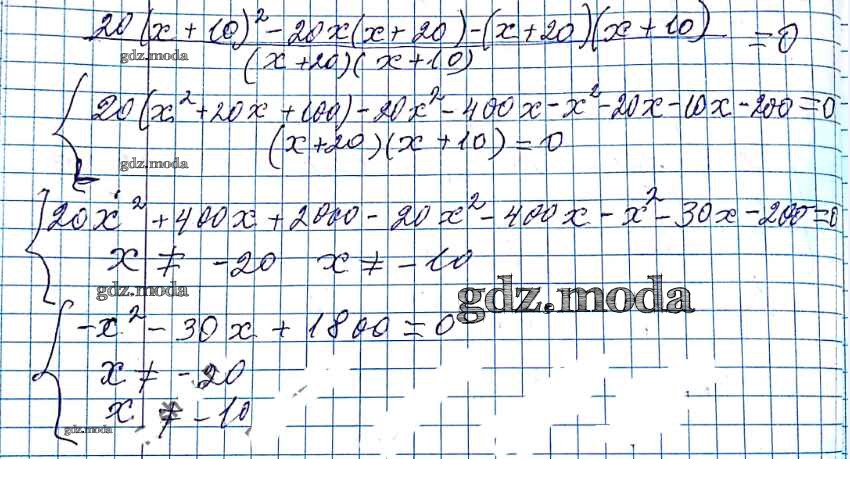 20(x + 10)² - 20x(x + 20) - (x + 20)(x + 10) = 0
gdz.moda
(x+20)(x+10)
20(x² + 20x + 100) - 20x² - 400x - x² - 20x - 10x - 200 = 0
(x+20)(x+10) = 0
gdz.moda
20x² + 400x + 2000 - 20x² - 400x - x² - 30x - 200 = 0
x ≠ -20 x ≠ -10
gdz.moda
gdz.moda
-x² - 30x + 1800 = 0
x ≠ -20
x ≠ -10
gdz.moda